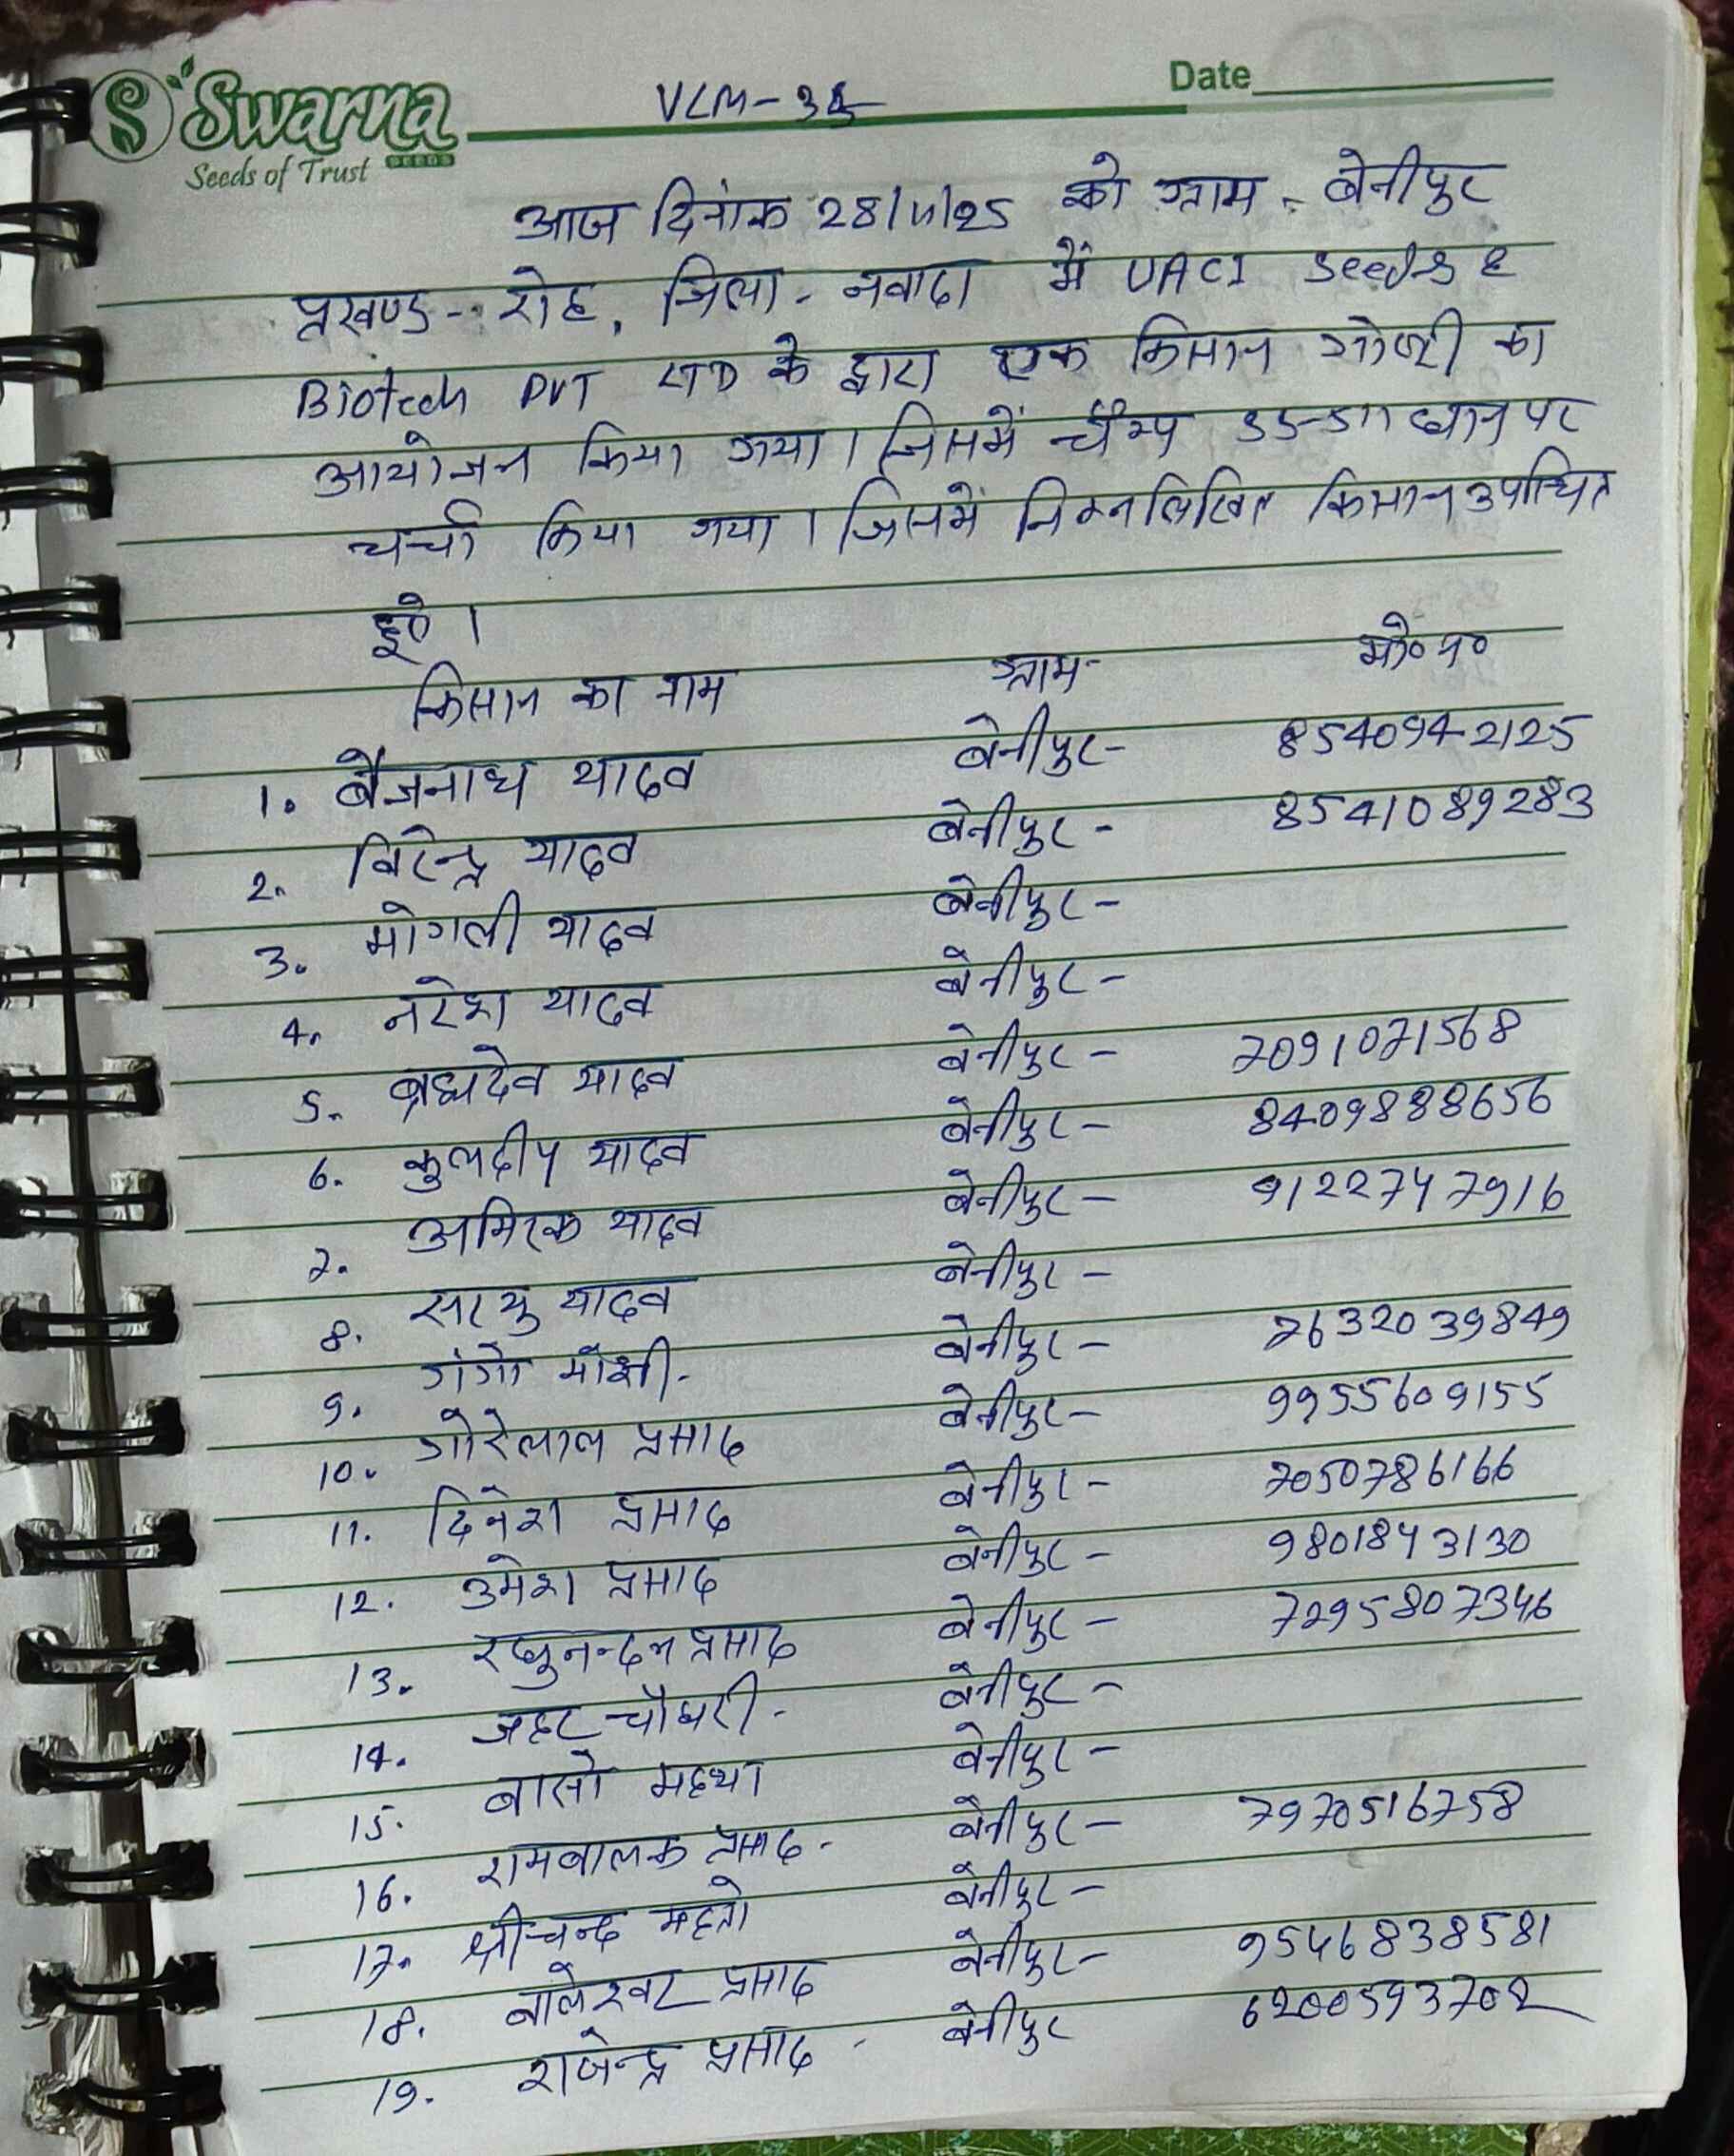 Swarna
SEEDS
Seeds of Trust
VLM-
Date
आज दिनांक 28/11/25 को ग्राम - बेनीपुर
प्रखण्ड - रोह, जिला - नवादा में UACI Seeds &
Biotech PVT LTD के द्वारा एक किसान गोष्टी का
आयोजन किया गया। जिसमें चैम्प SS-511 धान पर
चर्चा किया गया। जिसमें निम्नलिखित किसान उपस्थित
हुऐ।
किसान का नाम ग्राम- मो० न०
1. बैजनाथ यादव बेनीपुर- 8540942125
2. विरेन्द्र यादव बेनीपुर- 8541089283
3. मोगली यादव बेनीपुर-
4. नरेश यादव बेनीपुर-
5. ब्रह्मदेव यादव बेनीपुर- 7091071568
6. कुलदीप यादव बेनीपुर- 8409888656
7. अमिरक यादव बेनीपुर- 9122747916
8. सरयु यादव बेनीपुर-
9. गंगो बेनीपुर- 7632039849
10. गोरेलाल प्रसाद बेनीपुर- 9955609155
11. दिनेश प्रसाद बेनीपुर- 7050786166
12. उमेश प्रसाद बेनीपुर- 9801843130
13. रघुनन्दन प्रसाद बेनीपुर- 7295807346
14. जहर चौधरी- बेनीपुर-
15. बासो महथा बेनीपुर-
16. रामबालक प्रसाद- बेनीपुर- 7970516758
17. श्रीचन्द महतो बेनीपुर-
18. बालेश्वर प्रसाद बेनीपुर- 9546838581
19. राजेन्द्र प्रसाद - बेनीपुर 6200593702